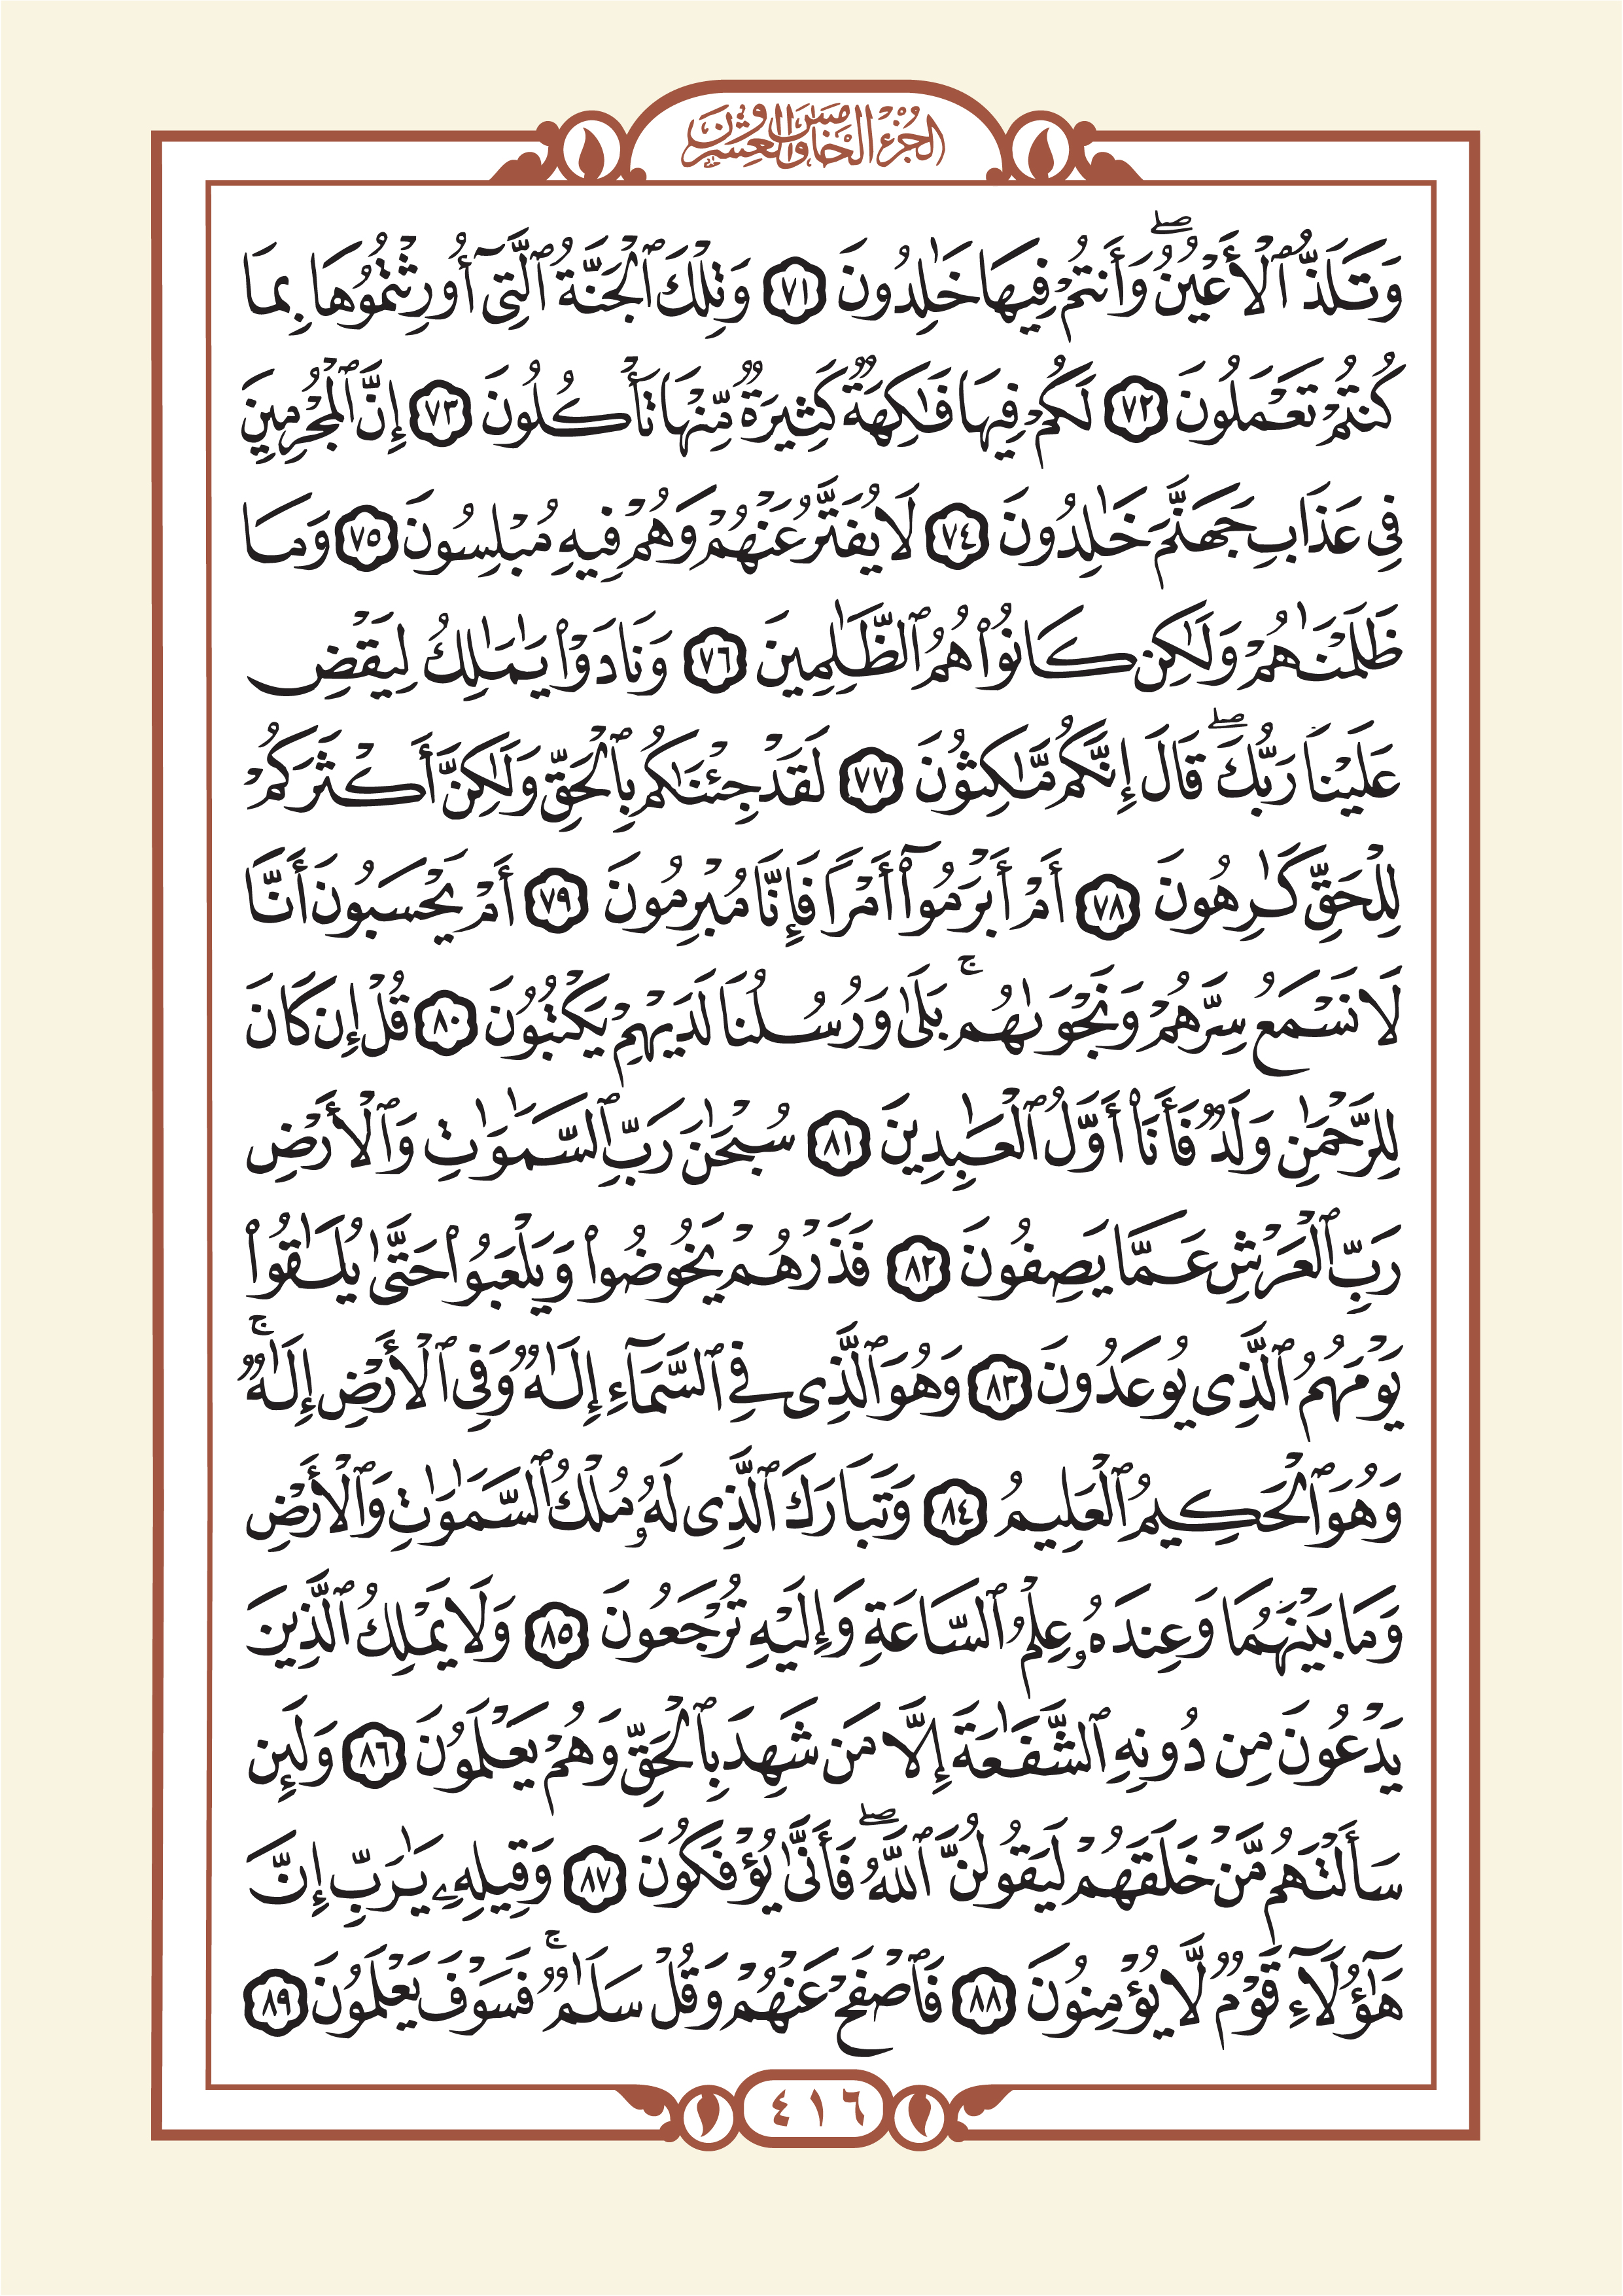 الجزء الخامس والعشرون
وَتَلَذُّ ٱلْأَعْيُنُ ۖ وَأَنتُمْ فِيهَا خَٰلِدُونَ ٧١ وَتِلْكَ ٱلْجَنَّةُ ٱلَّتِىٓ أُورِثْتُمُوهَا بِمَا
كُنتُمْ تَعْمَلُونَ ٧٢ لَكُمْ فِيهَا فَٰكِهَةٌ كَثِيرَةٌ مِّنْهَا تَأْكُلُونَ ٧٣ إِنَّ ٱلْمُجْرِمِينَ
فِى عَذَابِ جَهَنَّمَ خَٰلِدُونَ ٧٤ لَا يُفَتَّرُ عَنْهُمْ وَهُمْ فِيهِ مُبْلِسُونَ ٧٥ وَمَا
ظَلَمْنَٰهُمْ وَلَٰكِن كَانُوا۟ هُمُ ٱلظَّٰلِمِينَ ٧٦ وَنَادَوْا۟ يَٰمَٰلِكُ لِيَقْضِ
عَلَيْنَا رَبُّكَ ۖ قَالَ إِنَّكُم مَّٰكِثُونَ ٧٧ لَقَدْ جِئْنَٰكُم بِٱلْحَقِّ وَلَٰكِنَّ أَكْثَرَكُمْ
لِلْحَقِّ كَٰرِهُونَ ٧٨ أَمْ أَبْرَمُوٓا۟ أَمْرًا فَإِنَّا مُبْرِمُونَ ٧٩ أَمْ يَحْسَبُونَ أَنَّا
لَا نَسْمَعُ سِرَّهُمْ وَنَجْوَىٰهُم ۚ بَلَىٰ وَرُسُلُنَا لَدَيْهِمْ يَكْتُبُونَ ٨٠ قُلْ إِن كَانَ
لِلرَّحْمَٰنِ وَلَدٌ فَأَنَا۠ أَوَّلُ ٱلْعَٰبِدِينَ ٨١ سُبْحَٰنَ رَبِّ ٱلسَّمَٰوَٰتِ وَٱلْأَرْضِ
رَبِّ ٱلْعَرْشِ عَمَّا يَصِفُونَ ٨٢ فَذَرْهُمْ يَخُوضُوا۟ وَيَلْعَبُوا۟ حَتَّىٰ يُلَٰقُوا۟
يَوْمَهُمُ ٱلَّذِى يُوعَدُونَ ٨٣ وَهُوَ ٱلَّذِى فِى ٱلسَّمَآءِ إِلَٰهٌ وَفِى ٱلْأَرْضِ إِلَٰهٌ ۚ
وَهُوَ ٱلْحَكِيمُ ٱلْعَلِيمُ ٨٤ وَتَبَارَكَ ٱلَّذِى لَهُۥ مُلْكُ ٱلسَّمَٰوَٰتِ وَٱلْأَرْضِ
وَمَا بَيْنَهُمَا وَعِندَهُۥ عِلْمُ ٱلسَّاعَةِ وَإِلَيْهِ تُرْجَعُونَ ٨٥ وَلَا يَمْلِكُ ٱلَّذِينَ
يَدْعُونَ مِن دُونِهِ ٱلشَّفَٰعَةَ إِلَّا مَن شَهِدَ بِٱلْحَقِّ وَهُمْ يَعْلَمُونَ ٨٦ وَلَئِن
سَأَلْتَهُم مَّنْ خَلَقَهُمْ لَيَقُولُنَّ ٱللَّهُ ۖ فَأَنَّىٰ يُؤْفَكُونَ ٨٧ وَقِيلِهِۦ يَٰرَبِّ إِنَّ
هَٰٓؤُلَآءِ قَوْمٌ لَّا يُؤْمِنُونَ ٨٨ فَٱصْفَحْ عَنْهُمْ وَقُلْ سَلَٰمٌ ۚ فَسَوْفَ يَعْلَمُونَ ٨٩
٤١٦